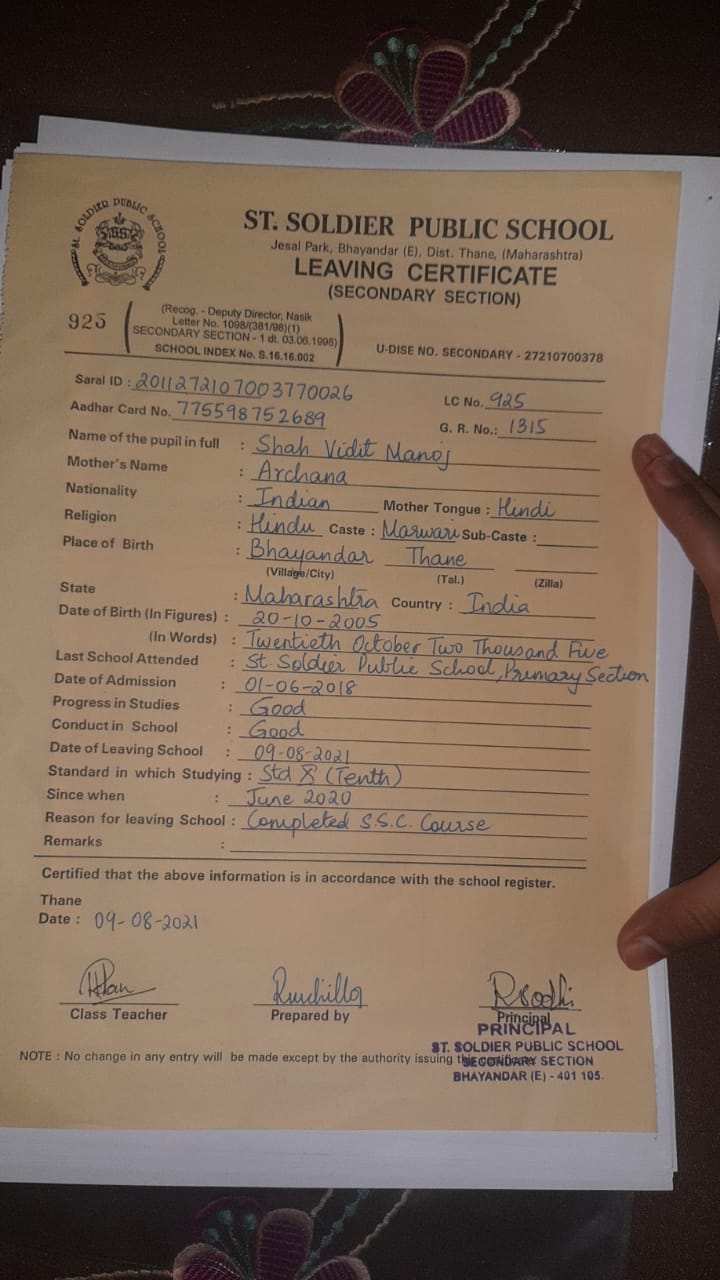 ST. SOLDIER PUBLIC SCHOOL
ST. SOLDIER PUBLIC SCHOOL
Jesal Park, Bhayandar (E), Dist. Thane, (Maharashtra)
LEAVING CERTIFICATE
(SECONDARY SECTION)
925
(Recog. - Deputy Director, Nasik
Letter No. 1098/(381/98)(1)
SECONDARY SECTION - 1 dt. 03.06.1998)
SCHOOL INDEX No. S.16.16.002
U-DISE NO. SECONDARY - 27210700378
Saral ID : 2011272107003770026 LC No. 925
Aadhar Card No. 775598752689 G. R. No.: 1315
Name of the pupil in full : Shah Vidit Manoj
Mother's Name : Archana
Nationality : Indian Mother Tongue : Hindi
Religion : Hindu Caste : Marwari Sub-Caste :
Place of Birth : Bhayandar Thane
(Village/City) (Tal.) (Zilla)
State : Maharashtra Country : India
Date of Birth (In Figures) : 20-10-2005
(In Words) : Twentieth October Two Thousand Five
Last School Attended : St. Soldier Public School, Primary Section
Date of Admission : 01-06-2018
Progress in Studies : Good
Conduct in School : Good
Date of Leaving School : 09-08-2021
Standard in which Studying : Std X (Tenth)
Since when : June 2020
Reason for leaving School : Completed S.S.C. Course
Remarks :
Certified that the above information is in accordance with the school register.
Thane
Date : 09-08-2021
Class Teacher Prepared by Principal
PRINCIPAL
ST. SOLDIER PUBLIC SCHOOL
SECONDARY SECTION
BHAYANDAR (E) - 401 105.
NOTE : No change in any entry will be made except by the authority issuing this certificate